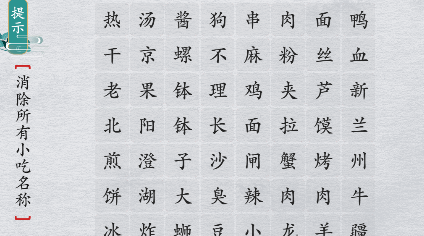 提示
【消除所有小吃名称】
热汤酱狗串肉面鸭
干京螺不麻粉丝血
老果钵理鸡夹芦新
北阳钵长面拉馍兰
煎澄子沙闸蟹烤州
饼湖大臭辣肉肉牛
冰炸蛳豆小龙羊疆